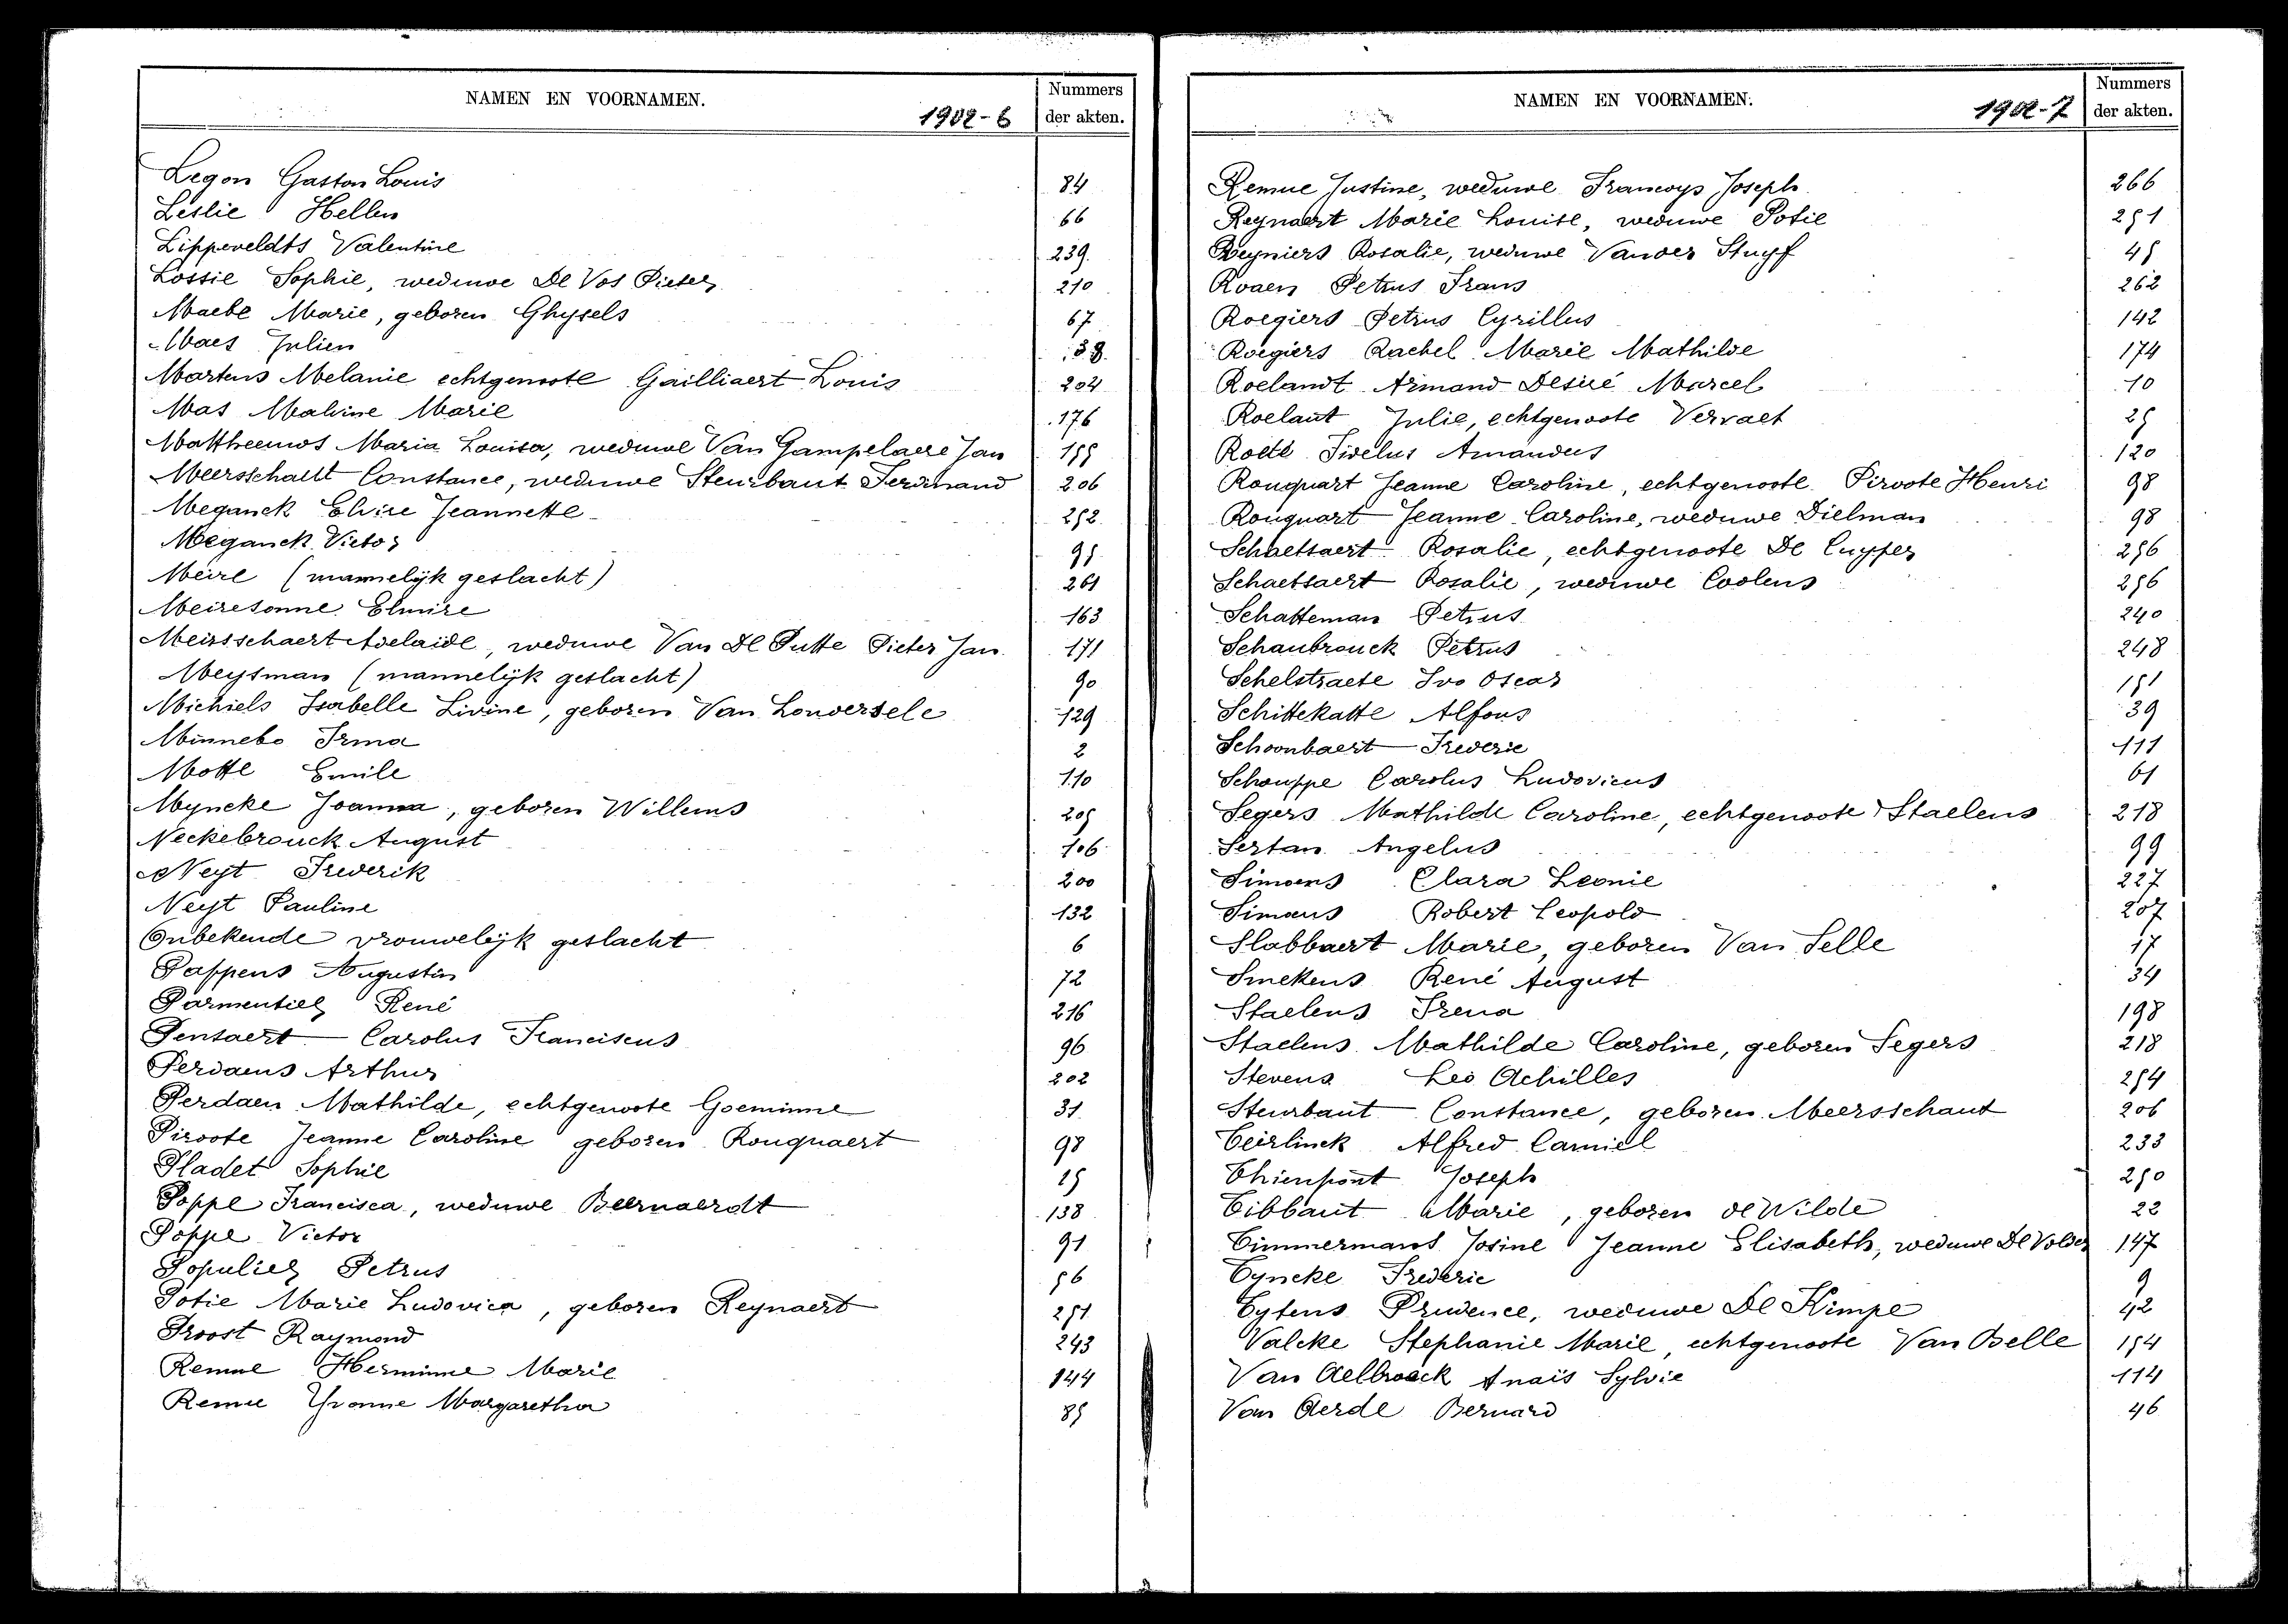 NAMEN EN VOORNAMEN. 1902-6 Nummers der akten.
Legon Gaston Louis 84
Leslie Hellen 66
Lippeveldts Valentine 239
Lossie Sophie, weduwe De Vos Pieter 210
Maebe Marie, geboren Ghysels 67
Maes Julien 38
Martens Melanie echtgenoote Gailliaert Louis 204
Mas Malvine Marie 176
Mattheeuws Maria Louisa, weduwe Van Gampelaere Jan 155
Meersschaut Constance, weduwe Steurbaut Ferdinand 206
Meganck Elvire Jeannette 252
Meganck Victor 95
Meire (mannelijk geslacht) 261
Meiresonne Elmire 163
Meirsschaert Adelaide, weduwe Van De Putte Pieter Jan 171
Meysman (mannelijk geslacht) 90
Michiels Isabelle Livine, geboren Van Londersele 129
Minnebo Irma 2
Motte Emile 110
Myncke Joanna, geboren Willems 205
Neckebrouck August 106
Neyt Frederik 200
Neyt Pauline 132
Onbekende vrouwelijk geslacht 6
Pappens Augustin 72
Parmentier René 216
Pentaert Carolus Franciscus 96
Perdaens Arthur 202
Perdaen Mathilde, echtgenoote Goeminne 31
Piroote Jeanne Caroline geboren Rouquaert 98
Pladet Sophie 15
Poppe Francisca, weduwe Beernaerdt 138
Poppe Victor 91
Populier Petrus 56
Potie Marie Ludovica, geboren Reynaert 251
Proost Raymond 243
Remue Herminne Marie 144
Remue Yvonne Margaretha 85
NAMEN EN VOORNAMEN. 1902-7 Nummers der akten.
Remue Justine, weduwe Francoys Joseph 266
Reynaert Marie Louise, weduwe Potie 251
Reyniers Rosalie, weduwe Vander Stuyf 45
Roaen Petrus Frans 262
Roegiers Petrus Cyrillus 142
Roegiers Rachel Marie Mathilde 174
Roelandt Armand Desiré Marcel 10
Roelant Julie, echtgenoote Vervaet 25
Roete Fidelus Amandus 120
Rouquart Jeanne Caroline, echtgenoote Piroote Henri 98
Rouquart Jeanne Caroline, weduwe Dielman 98
Schaetsaert Rosalie, echtgenoote De Cuyper 256
Schaetsaert Rosalie, weduwe Coolens 256
Schatteman Petrus 240
Schaubrouck Petrus 248
Schelstraete Ivo Oscar 151
Schittekatte Alfons 39
Schoonbaert Frederic 111
Schouppe Carolus Ludovicus 61
Segers Mathilde Caroline, echtgenoote Staelens 218
Sertan Angelus 99
Simoens Clara Leonie 227
Simoens Robert Leopold 207
Slabbaert Marie, geboren Van Selle 17
Smekens René August 34
Staelens Irena 198
Staelens Mathilde Caroline, geboren Segers 218
Stevens Leo Achilles 254
Steurbaut Constance, geboren Meersschaut 206
Teirlinck Alfred Camiel 233
Thienpont Joseph 250
Tibbaut Marie, geboren de Wilde 22
Timmermans Josine Jeanne Elisabeth, weduwe De Volder 147
Tyncke Frederic 9
Tytens Prudence, weduwe De Kimpe 42
Valcke Stephanie Marie, echtgenoote Van Belle 154
Van Aelbroeck Anaïs Sylvie 114
Van Aerde Bernard 46